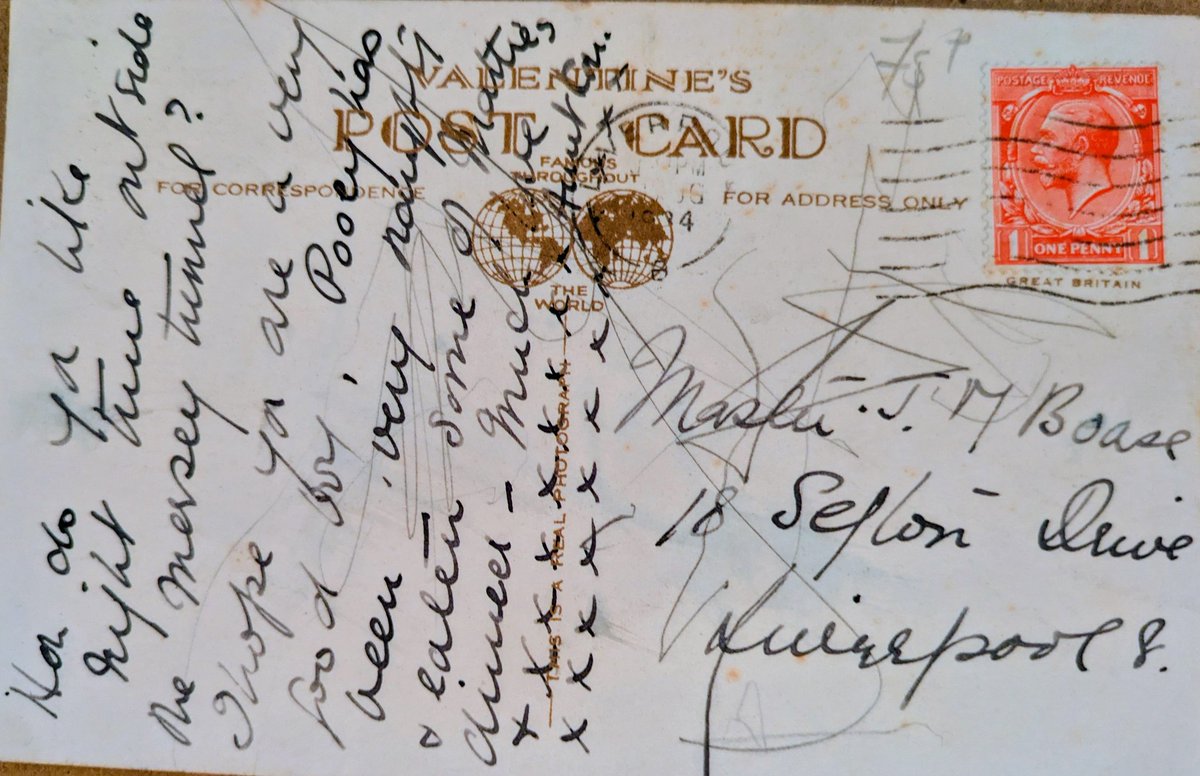 VALENTINE'S
POST CARD
FAMOUS
THROUGHOUT
THE
WORLD
FOR CORRESPONDENCE
FOR ADDRESS ONLY
THIS IS A REAL PHOTOGRAPH
POSTAGE REVENUE
1 ONE PENNY 1
GREAT BRITAIN
PM
1934
How do you like
night time outside
the Mersey tunnel?
I hope you are a very
good boy. Pooey has
been very naughty
& eaten some of Matties
dinner - Much love
x x x x x x x x x
x x x x x x x x x
Master J. M Boase
18 Sefton Drive
Liverpool 8.